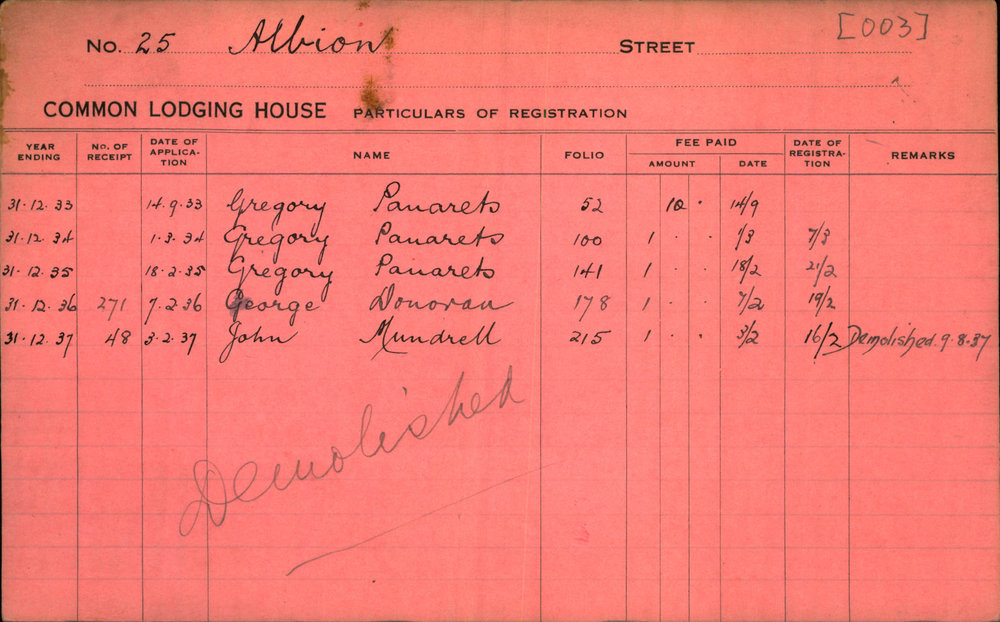 [003]
No. 25 Albion STREET
COMMON LODGING HOUSE PARTICULARS OF REGISTRATION
YEAR ENDING NO. OF RECEIPT DATE OF APPLICA- TION NAME FOLIO FEE PAID AMOUNT DATE DATE OF REGISTRA- TION REMARKS
31.12.33 14.9.33 Gregory Panarets 52 10 . 14/9
31.12.34 1.3.34 Gregory Panarets 100 1 . . 1/3 7/3
31.12.35 18.2.35 Gregory Panarets 141 1 . . 18/2 21/2
31.12.36 271 7.2.36 George Donovan 178 1 . . 7/2 19/2
31.12.37 48 3.2.37 John Mundrell 215 1 . . 3/2 16/2 Demolished.9.8.37
Demolished